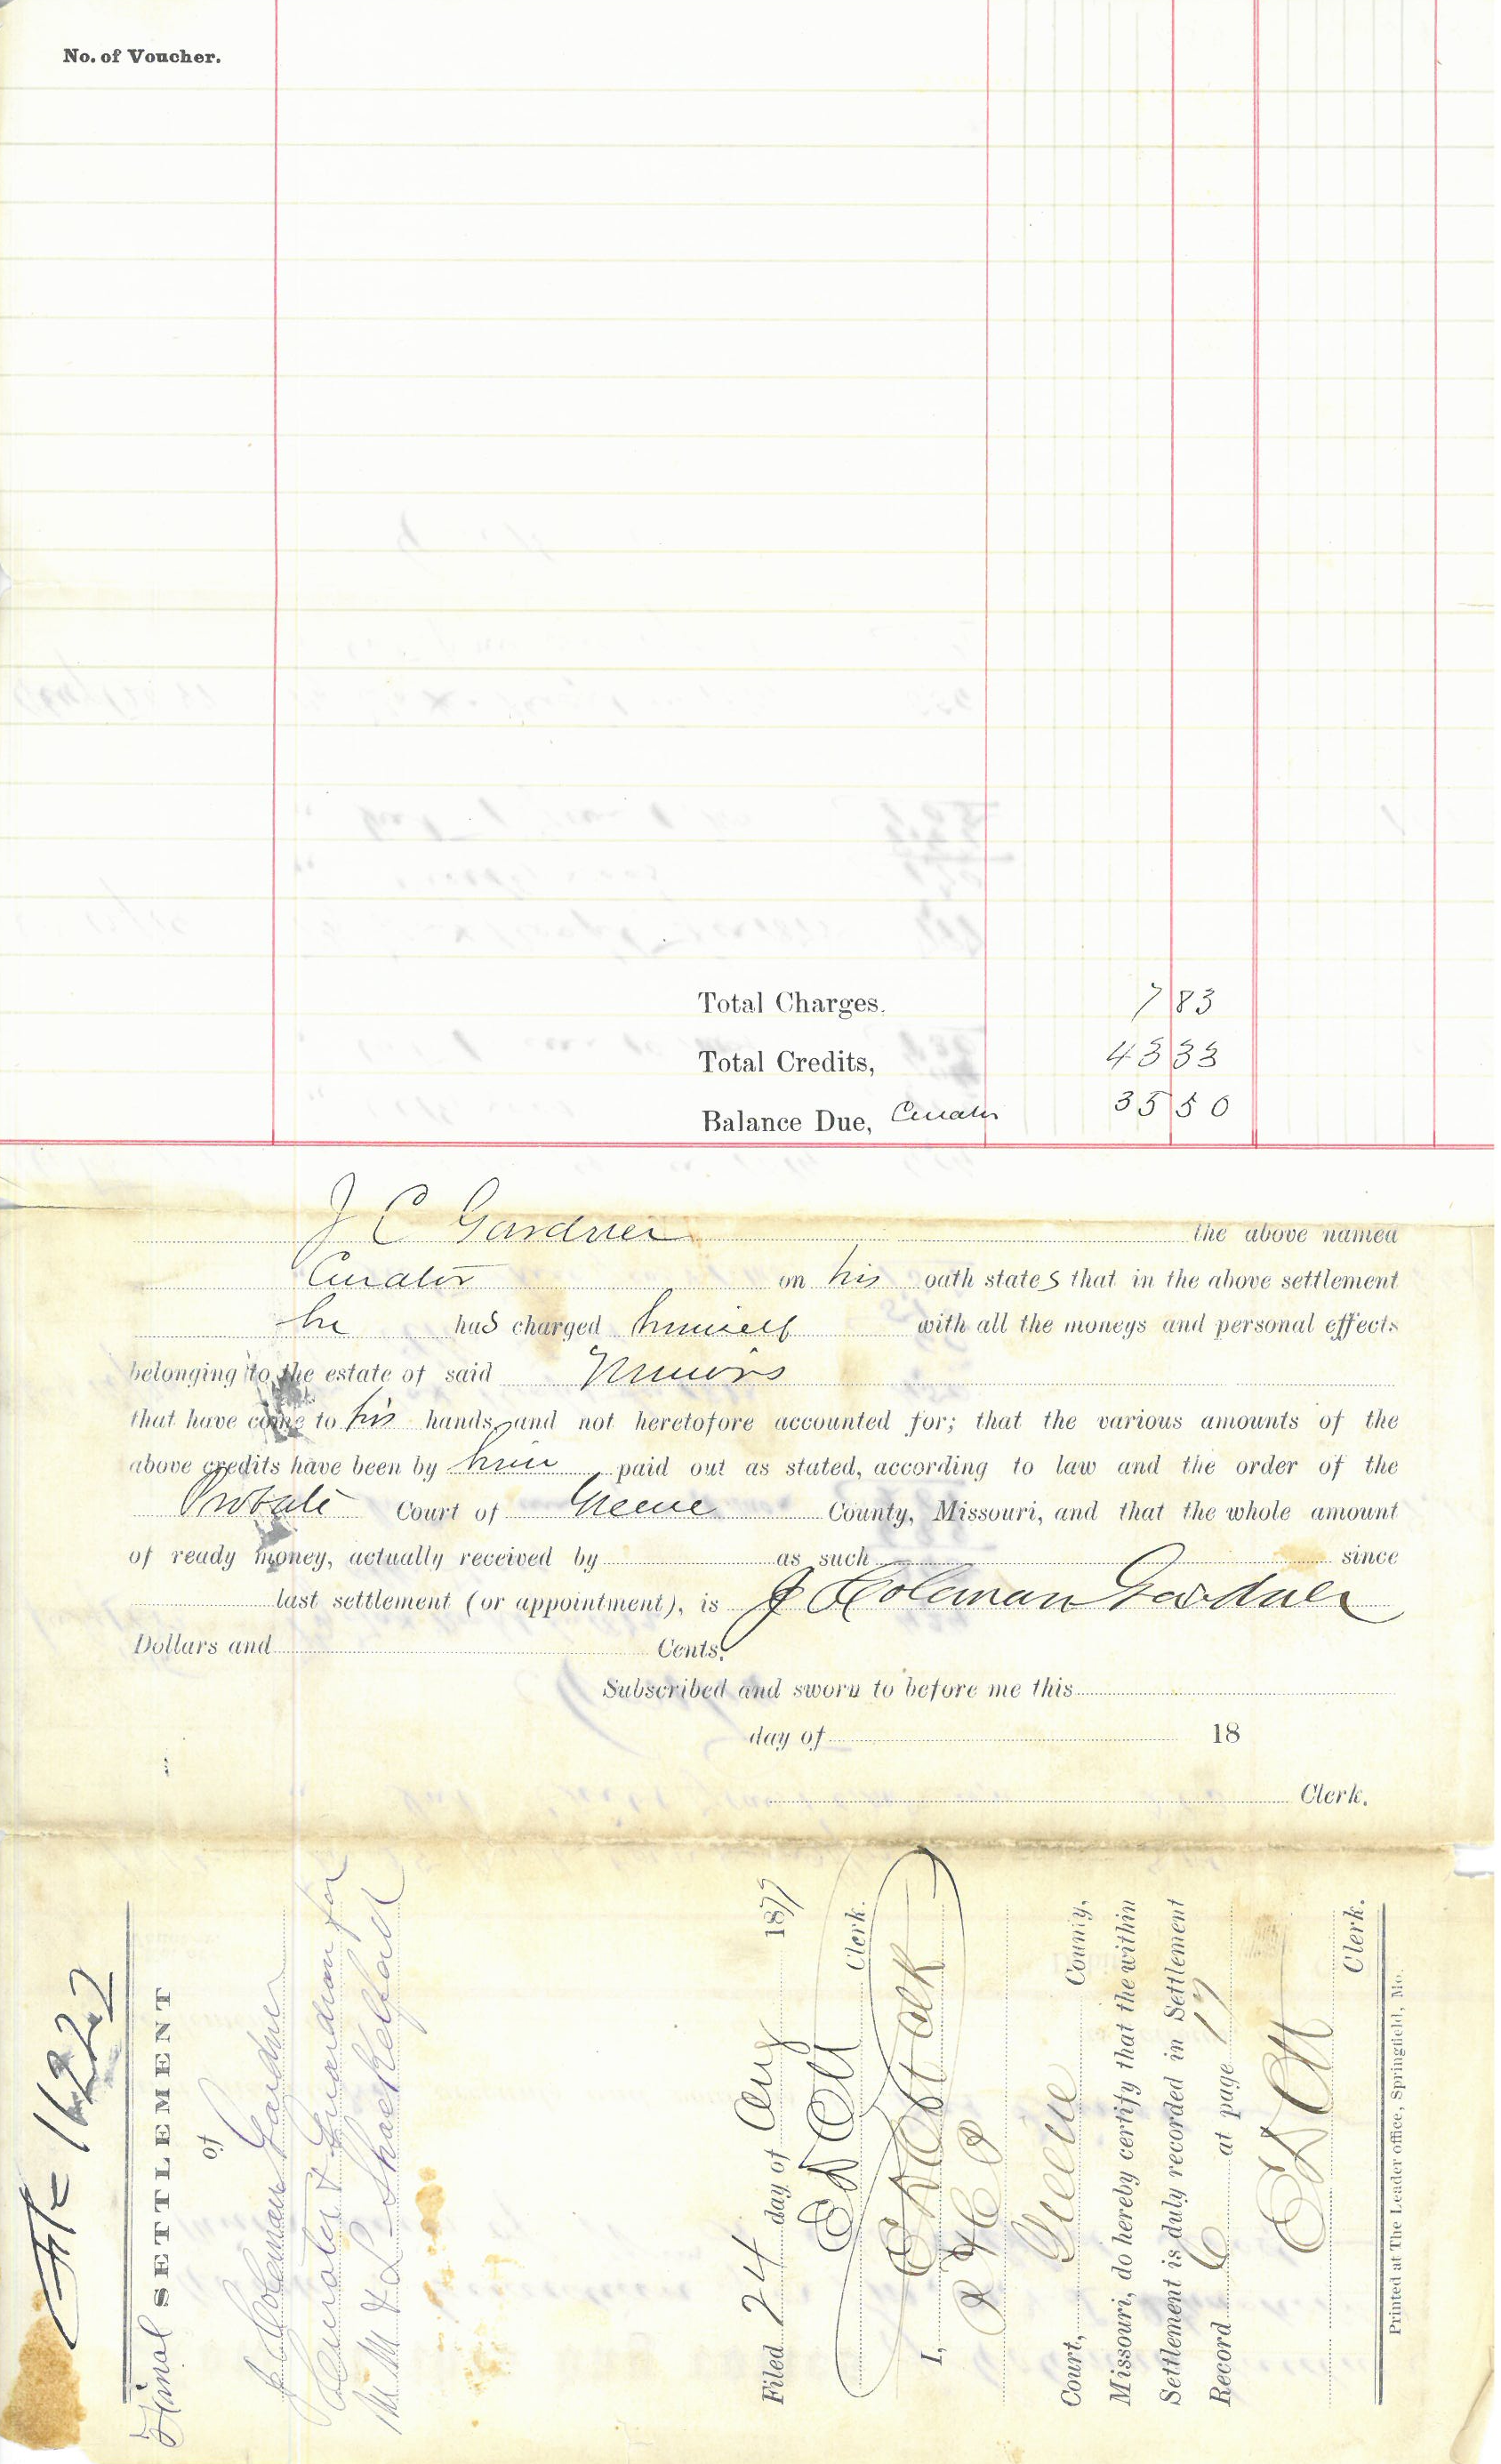 No. of Voucher.
Total Charges. 7 83
Total Credits, 43 33
Balance Due, Curator 35 50
J C Gardner the above named
Curator on his oath states that in the above settlement
he has charged himself with all the moneys and personal effects
belonging to the estate of said Minors
that have come to his hands, and not heretofore accounted for; that the various amounts of the
above credits have been by him paid out as stated, according to law and the order of the
Probate Court of Greene County, Missouri, and that the whole amount
of ready money, actually received by as such since
last settlement (or appointment), is J Coleman Gardner
Dollars and Cents.
Subscribed and sworn to before me this
day of 18
Clerk.
1622
Final SETTLEMENT
of
J. Coleman Gardner
Curator & Guardian for
M. M & L Shackelford
Filed 24 day of Aug 1877
E D Ott Clerk.
I, E D Ott Clk
Court, Greene County,
Missouri, do hereby certify that the within
Settlement is duly recorded in Settlement
Record C at page 17
E D Ott
Clerk.
Printed at The Leader office, Springfield, Mo.